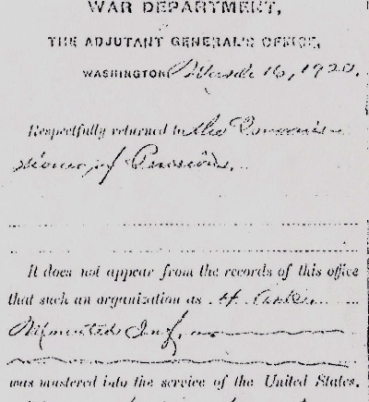 WAR DEPARTMENT,
THE ADJUTANT GENERAL'S OFFICE,
WASHINGTON, March 16, 1920.
Respectfully returned to the Commis-
sioner of Pensions.
It does not appear from the records of this office
that such an organization as
Mounted Inf.
was mustered into the service of the United States.